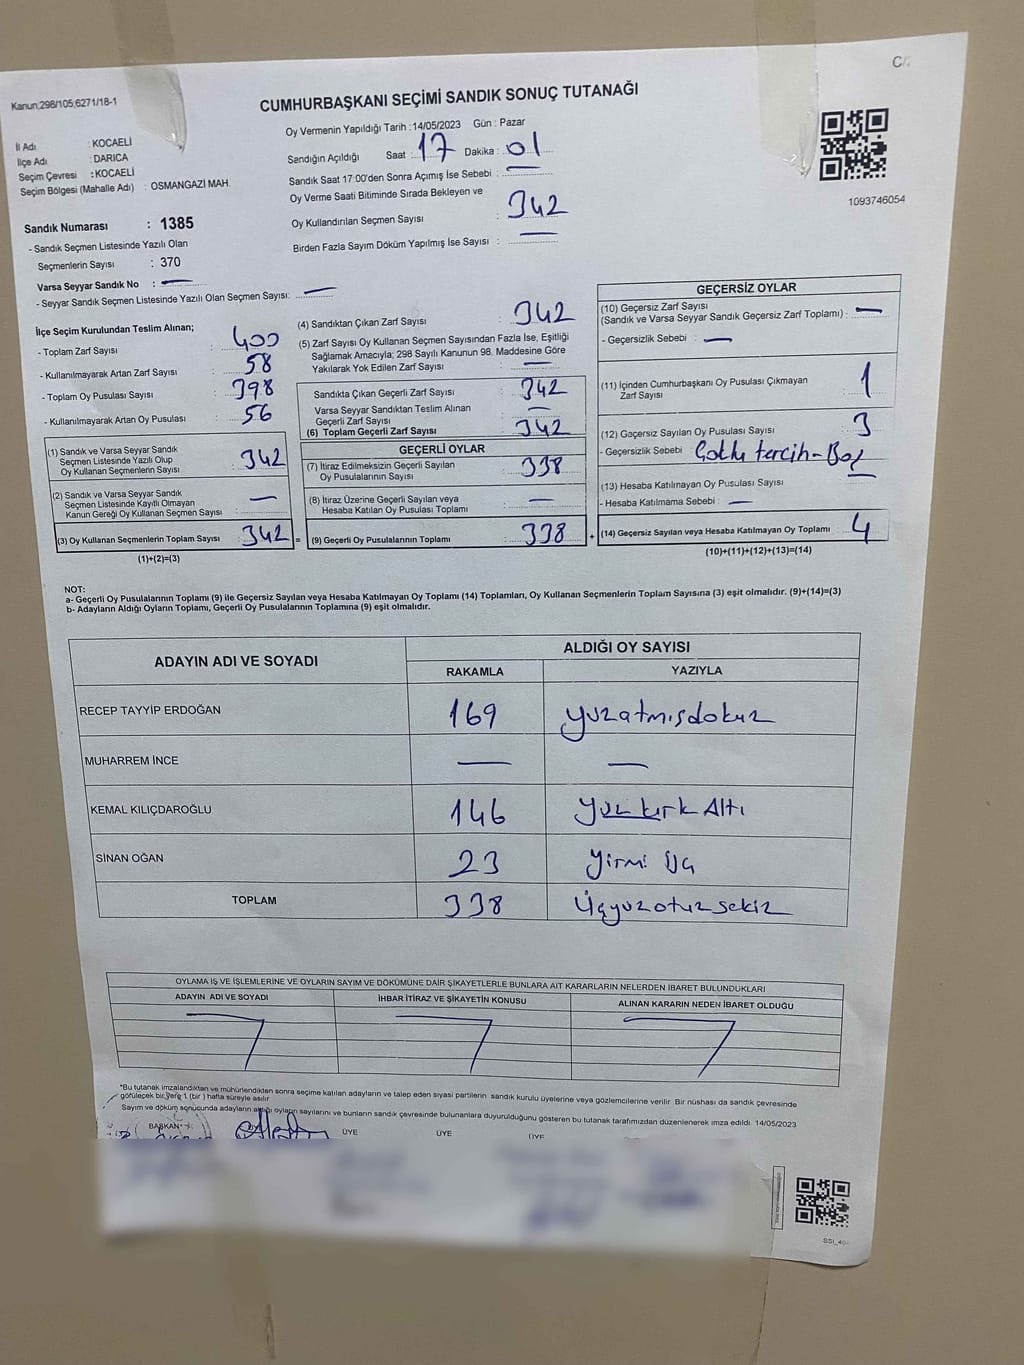 C/.
Kanun;298/105;6271/18-1
CUMHURBAŞKANI SEÇİMİ SANDIK SONUÇ TUTANAĞI
İl Adı : KOCAELİ
İlçe Adı : DARICA
Seçim Çevresi : KOCAELİ
Seçim Bölgesi (Mahalle Adı) : OSMANGAZİ MAH.
Oy Vermenin Yapıldığı Tarih : 14/05/2023 Gün : Pazar
Sandığın Açıldığı Saat : 17 Dakika : 01
Sandık Saat 17:00'den Sonra Açımış İse Sebebi : —
Oy Verme Saati Bitiminde Sırada Bekleyen ve
Oy Kullandırılan Seçmen Sayısı : 342
Birden Fazla Sayım Döküm Yapılmış İse Sayısı : —
1093746054
Sandık Numarası : 1385
- Sandık Seçmen Listesinde Yazılı Olan
Seçmenlerin Sayısı : 370
Varsa Seyyar Sandık No : —
- Seyyar Sandık Seçmen Listesinde Yazılı Olan Seçmen Sayısı: —
İlçe Seçim Kurulundan Teslim Alınan;
- Toplam Zarf Sayısı : 400
- Kullanılmayarak Artan Zarf Sayısı : 58
- Toplam Oy Pusulası Sayısı : 398
- Kullanılmayarak Artan Oy Pusulası : 56
(1) Sandık ve Varsa Seyyar Sandık
Seçmen Listesinde Yazılı Olup
Oy Kullanan Seçmenlerin Sayısı : 342
(2) Sandık ve Varsa Seyyar Sandık
Seçmen Listesinde Kayıtlı Olmayan
Kanun Gereği Oy Kullanan Seçmen Sayısı : —
(3) Oy Kullanan Seçmenlerin Toplam Sayısı : 342 =
(1)+(2)=(3)
(4) Sandıktan Çıkan Zarf Sayısı : 342
(5) Zarf Sayısı Oy Kullanan Seçmen Sayısından Fazla İse, Eşitliği
Sağlamak Amacıyla; 298 Sayılı Kanunun 98. Maddesine Göre
Yakılarak Yok Edilen Zarf Sayısı : —
Sandıkta Çıkan Geçerli Zarf Sayısı : 342
Varsa Seyyar Sandıktan Teslim Alınan
Geçerli Zarf Sayısı : —
(6) Toplam Geçerli Zarf Sayısı : 342
GEÇERLİ OYLAR
(7) İtiraz Edilmeksizin Geçerli Sayılan
Oy Pusulalarının Sayısı : 338
(8) İtiraz Üzerine Geçerli Sayılan veya
Hesaba Katılan Oy Pusulası Toplamı : —
(9) Geçerli Oy Pusulalarının Toplamı : 338 +
GEÇERSİZ OYLAR
(10) Geçersiz Zarf Sayısı
(Sandık ve Varsa Seyyar Sandık Geçersiz Zarf Toplamı) : —
- Geçersizlik Sebebi : —
(11) İçinden Cumhurbaşkanı Oy Pusulası Çıkmayan
Zarf Sayısı : 1
(12) Geçersiz Sayılan Oy Pusulası Sayısı : 3
- Geçersizlik Sebebi : Çoklu tercih-Boş
(13) Hesaba Katılmayan Oy Pusulası Sayısı : —
- Hesaba Katılmama Sebebi : —
(14) Geçersiz Sayılan veya Hesaba Katılmayan Oy Toplamı : 4
(10)+(11)+(12)+(13)=(14)
NOT:
a- Geçerli Oy Pusulalarının Toplamı (9) ile Geçersiz Sayılan veya Hesaba Katılmayan Oy Toplamı (14) Toplamları, Oy Kullanan Seçmenlerin Toplam Sayısına (3) eşit olmalıdır. (9)+(14)=(3)
b- Adayların Aldığı Oyların Toplamı, Geçerli Oy Pusulalarının Toplamına (9) eşit olmalıdır.
ADAYIN ADI VE SOYADI ALDIĞI OY SAYISI
RAKAMLA YAZIYLA
RECEP TAYYİP ERDOĞAN 169 yuzatmısdokuz
MUHARREM İNCE — —
KEMAL KILIÇDAROĞLU 146 Yuzkırk Altı
SİNAN OĞAN 23 Yirmi Üç
TOPLAM 338 Üçyuzotuzsekiz
OYLAMA İŞ VE İŞLEMLERİNE VE OYLARIN SAYIM VE DÖKÜMÜNE DAİR ŞİKAYETLERLE BUNLARA AİT KARARLARIN NELERDEN İBARET BULUNDUKLARI
ADAYIN ADI VE SOYADI İHBAR İTİRAZ VE ŞİKAYETİN KONUSU ALINAN KARARIN NEDEN İBARET OLDUĞU
*Bu tutanak imzalandıktan ve mühürlendikten sonra seçime katılan adayların ve talep eden siyasi partilerin sandık kurulu üyelerine veya gözlemcilerine verilir. Bir nüshası da sandık çevresinde
görülecek bir yere 1 (bir ) hafta süreyle asılır.
Sayım ve döküm sonucunda adayların aldığı oyların sayılarını ve bunların sandık çevresinde bulunanlara duyurulduğunu gösteren bu tutanak tarafımızdan düzenlenerek imza edildi. 14/05/2023
BAŞKAN ÜYE ÜYE ÜYE